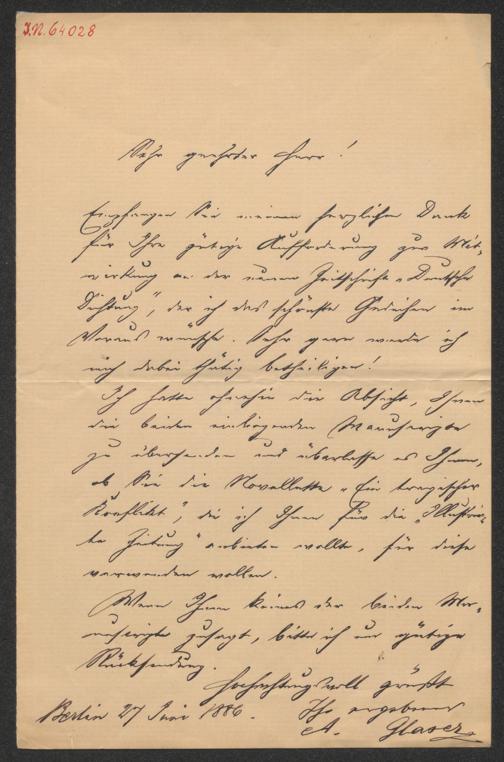 I.N. 64028
Sehr geehrter Herr!
Empfangen Sie meinen herzlichen Dank
für Ihre gütige Aufforderung zur Mit-
wirkung an der neuen Zeitschrift „Deutsche
Dichtung", der ich das schönste Gedeihen im
Voraus wünsche. Sehr gern werde ich
mich dabei thätig betheiligen!
Ich hatte ohnehin die Absicht, Ihnen
die beiden einliegenden Manuscripte
zu übersenden und überlasse es Ihnen,
ob Sie die Novellette „Ein tragischer
Konflikt", die ich Ihnen für die „Illustrir-
te Zeitung" anbieten wollte, für diese
verwenden wollen.
Wenn Ihnen keines der beiden Ma-
nuscripte zusagt, bitte ich um gütige
Rücksendung.
Hochachtungsvoll grüßt
Ihr ergebener
Berlin 27 Juni 1886.
A. Glaser